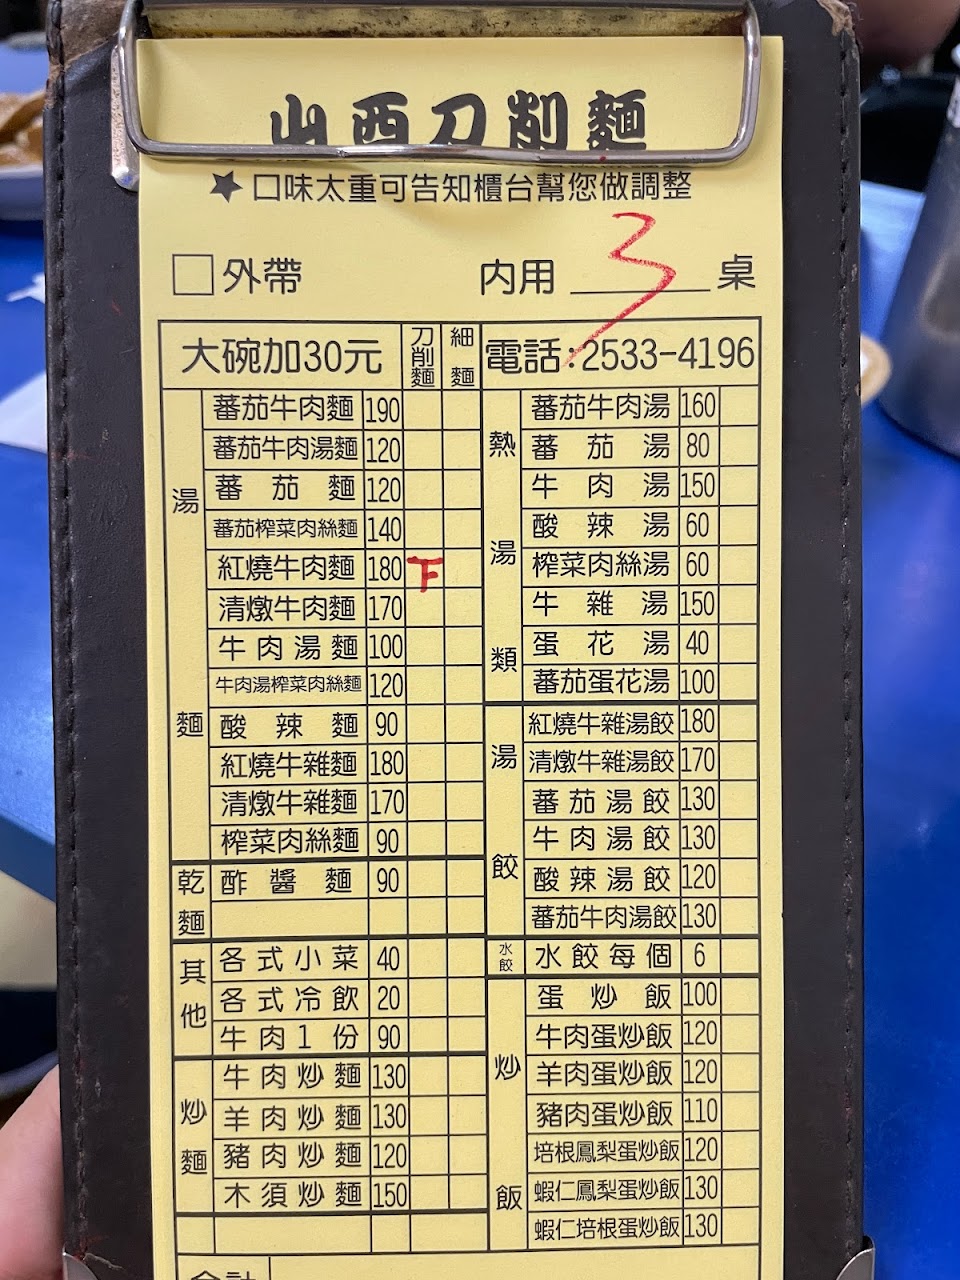 山西刀削麵
★口味太重可告知櫃台幫您做調整
□外帶 內用 3 桌
大碗加30元 刀削麵 細麵 電話:2533-4196
湯麵
蕃茄牛肉麵 190
蕃茄牛肉湯麵 120
蕃茄麵 120
蕃茄榨菜肉絲麵 140
紅燒牛肉麵 180
清燉牛肉麵 170
牛肉湯麵 100
牛肉湯榨菜肉絲麵 120
酸辣麵 90
紅燒牛雜麵 180
清燉牛雜麵 170
榨菜肉絲麵 90
乾麵
酢醬麵 90
其他
各式小菜 40
各式冷飲 20
牛肉1份 90
炒麵
牛肉炒麵 130
羊肉炒麵 130
豬肉炒麵 120
木須炒麵 150
合計
熱湯類
蕃茄牛肉湯 160
蕃茄湯 80
牛肉湯 150
酸辣湯 60
榨菜肉絲湯 60
牛雜湯 150
蛋花湯 40
蕃茄蛋花湯 100
湯餃
紅燒牛雜湯餃 180
清燉牛雜湯餃 170
蕃茄湯餃 130
牛肉湯餃 130
酸辣湯餃 120
蕃茄牛肉湯餃 130
水餃
水餃每個 6
炒飯
蛋炒飯 100
牛肉蛋炒飯 120
羊肉蛋炒飯 120
豬肉蛋炒飯 110
培根鳳梨蛋炒飯 120
蝦仁鳳梨蛋炒飯 130
蝦仁培根蛋炒飯 130